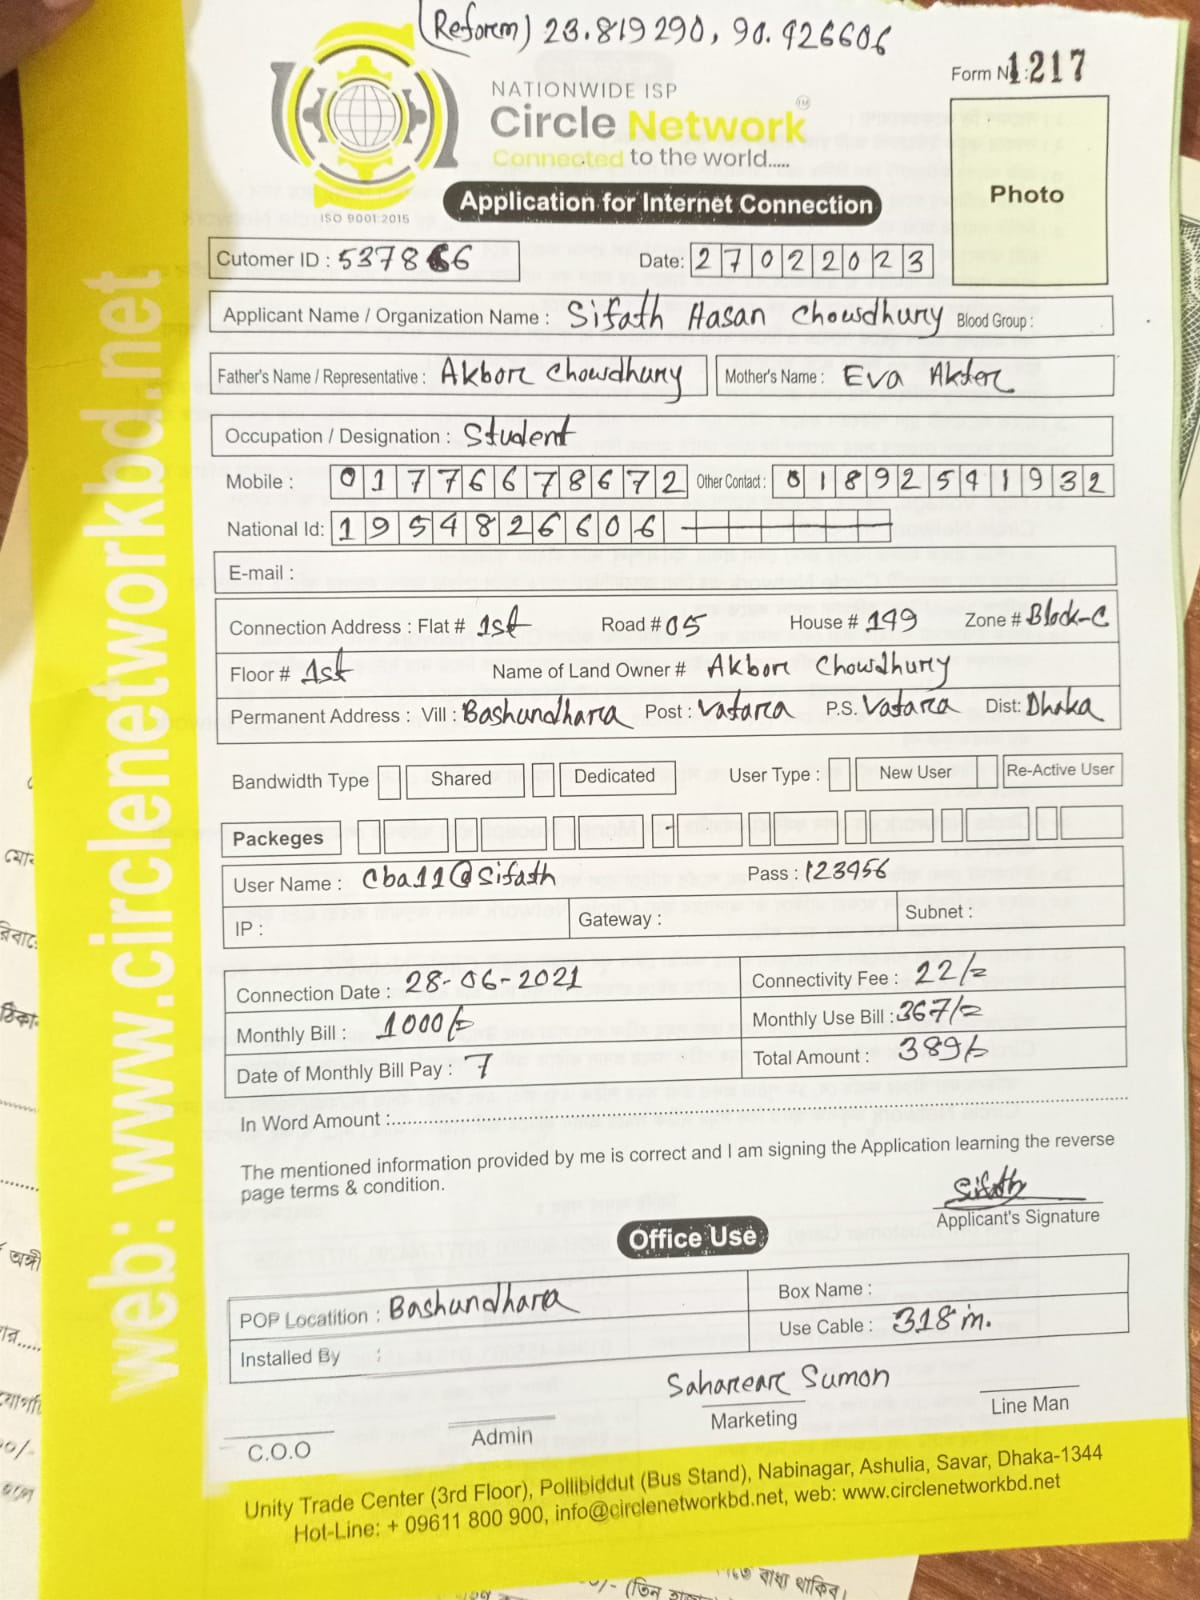 (Reform) 23.819290, 90.426606
NATIONWIDE ISP
Circle Network TM
Connected to the world.....
ISO 9001:2015
Form No: 1217
Photo
Application for Internet Connection
Cutomer ID : 537866
Date: 27022023
Applicant Name / Organization Name : Sifath Hasan Chowdhury Blood Group :
Father's Name / Representative : Akbor Chowdhury Mother's Name : Eva Akter
Occupation / Designation : Student
Mobile : 01776678672 Other Contact : 01892541932
National Id: 1954826606
E-mail :
Connection Address : Flat # 1st Road # 05 House # 149 Zone # Block-C
Floor # 1st Name of Land Owner # Akbor Chowdhury
Permanent Address : Vill : Bashundhara Post : Vatara P.S. Vatara Dist: Dhaka
Bandwidth Type Shared Dedicated User Type : New User Re-Active User
Packeges
User Name : Cba11@Sifath Pass : 123456
IP : Gateway : Subnet :
Connection Date : 28-06-2021 Connectivity Fee : 22/=
Monthly Bill : 1000/= Monthly Use Bill : 367/=
Date of Monthly Bill Pay : 7 Total Amount : 389/=
In Word Amount :
The mentioned information provided by me is correct and I am signing the Application learning the reverse
page terms & condition.
Sifath
Applicant's Signature
Office Use
POP Locatition : Bashundhara Box Name :
Installed By : Use Cable : 318 m.
Saharear Sumon
C.O.O Admin Marketing Line Man
Unity Trade Center (3rd Floor), Pollibiddut (Bus Stand), Nabinagar, Ashulia, Savar, Dhaka-1344
Hot-Line: + 09611 800 900, info@circlenetworkbd.net, web: www.circlenetworkbd.net
web: www.circlenetworkbd.net
বাধ্য থাকিব।